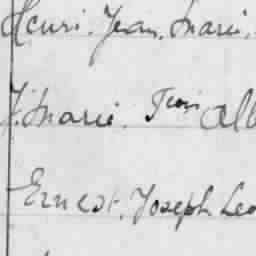 Henri. Jean. Marie.
J. Marie. Fran Alb
Ernest. Joseph Leo